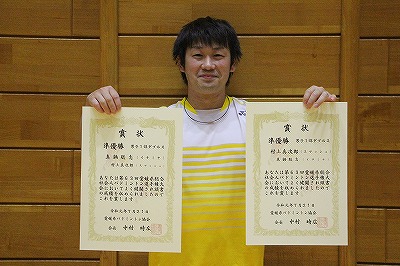 賞状
準優勝 男子1部ダブルス
あなたは第63回愛媛県総合
社会人バドミントン選手権大
会において
の成績を収められましたので
これを賞します
令和元年7月21日
愛媛県バドミントン協会
会長 中村 時広
賞状
準優勝 男子1部ダブルス
村上良次郎
あなたは第63回愛媛県総合
社会人バドミントン選手権大
会において
の成績を収められましたので
これを賞します
令和元年7月21日
愛媛県バドミントン協会
会長 中村 時広